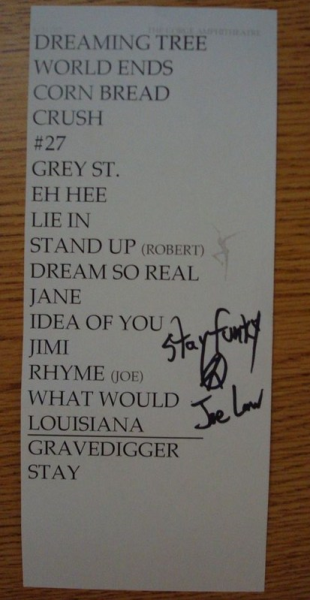 THE GORGE AMPHITHEATRE
DREAMING TREE
WORLD ENDS
CORN BREAD
CRUSH
#27
GREY ST.
EH HEE
LIE IN
STAND UP (ROBERT)
DREAM SO REAL
JANE
IDEA OF YOU
JIMI
RHYME (JOE)
WHAT WOULD
LOUISIANA
GRAVEDIGGER
STAY
Stay funky
Joe